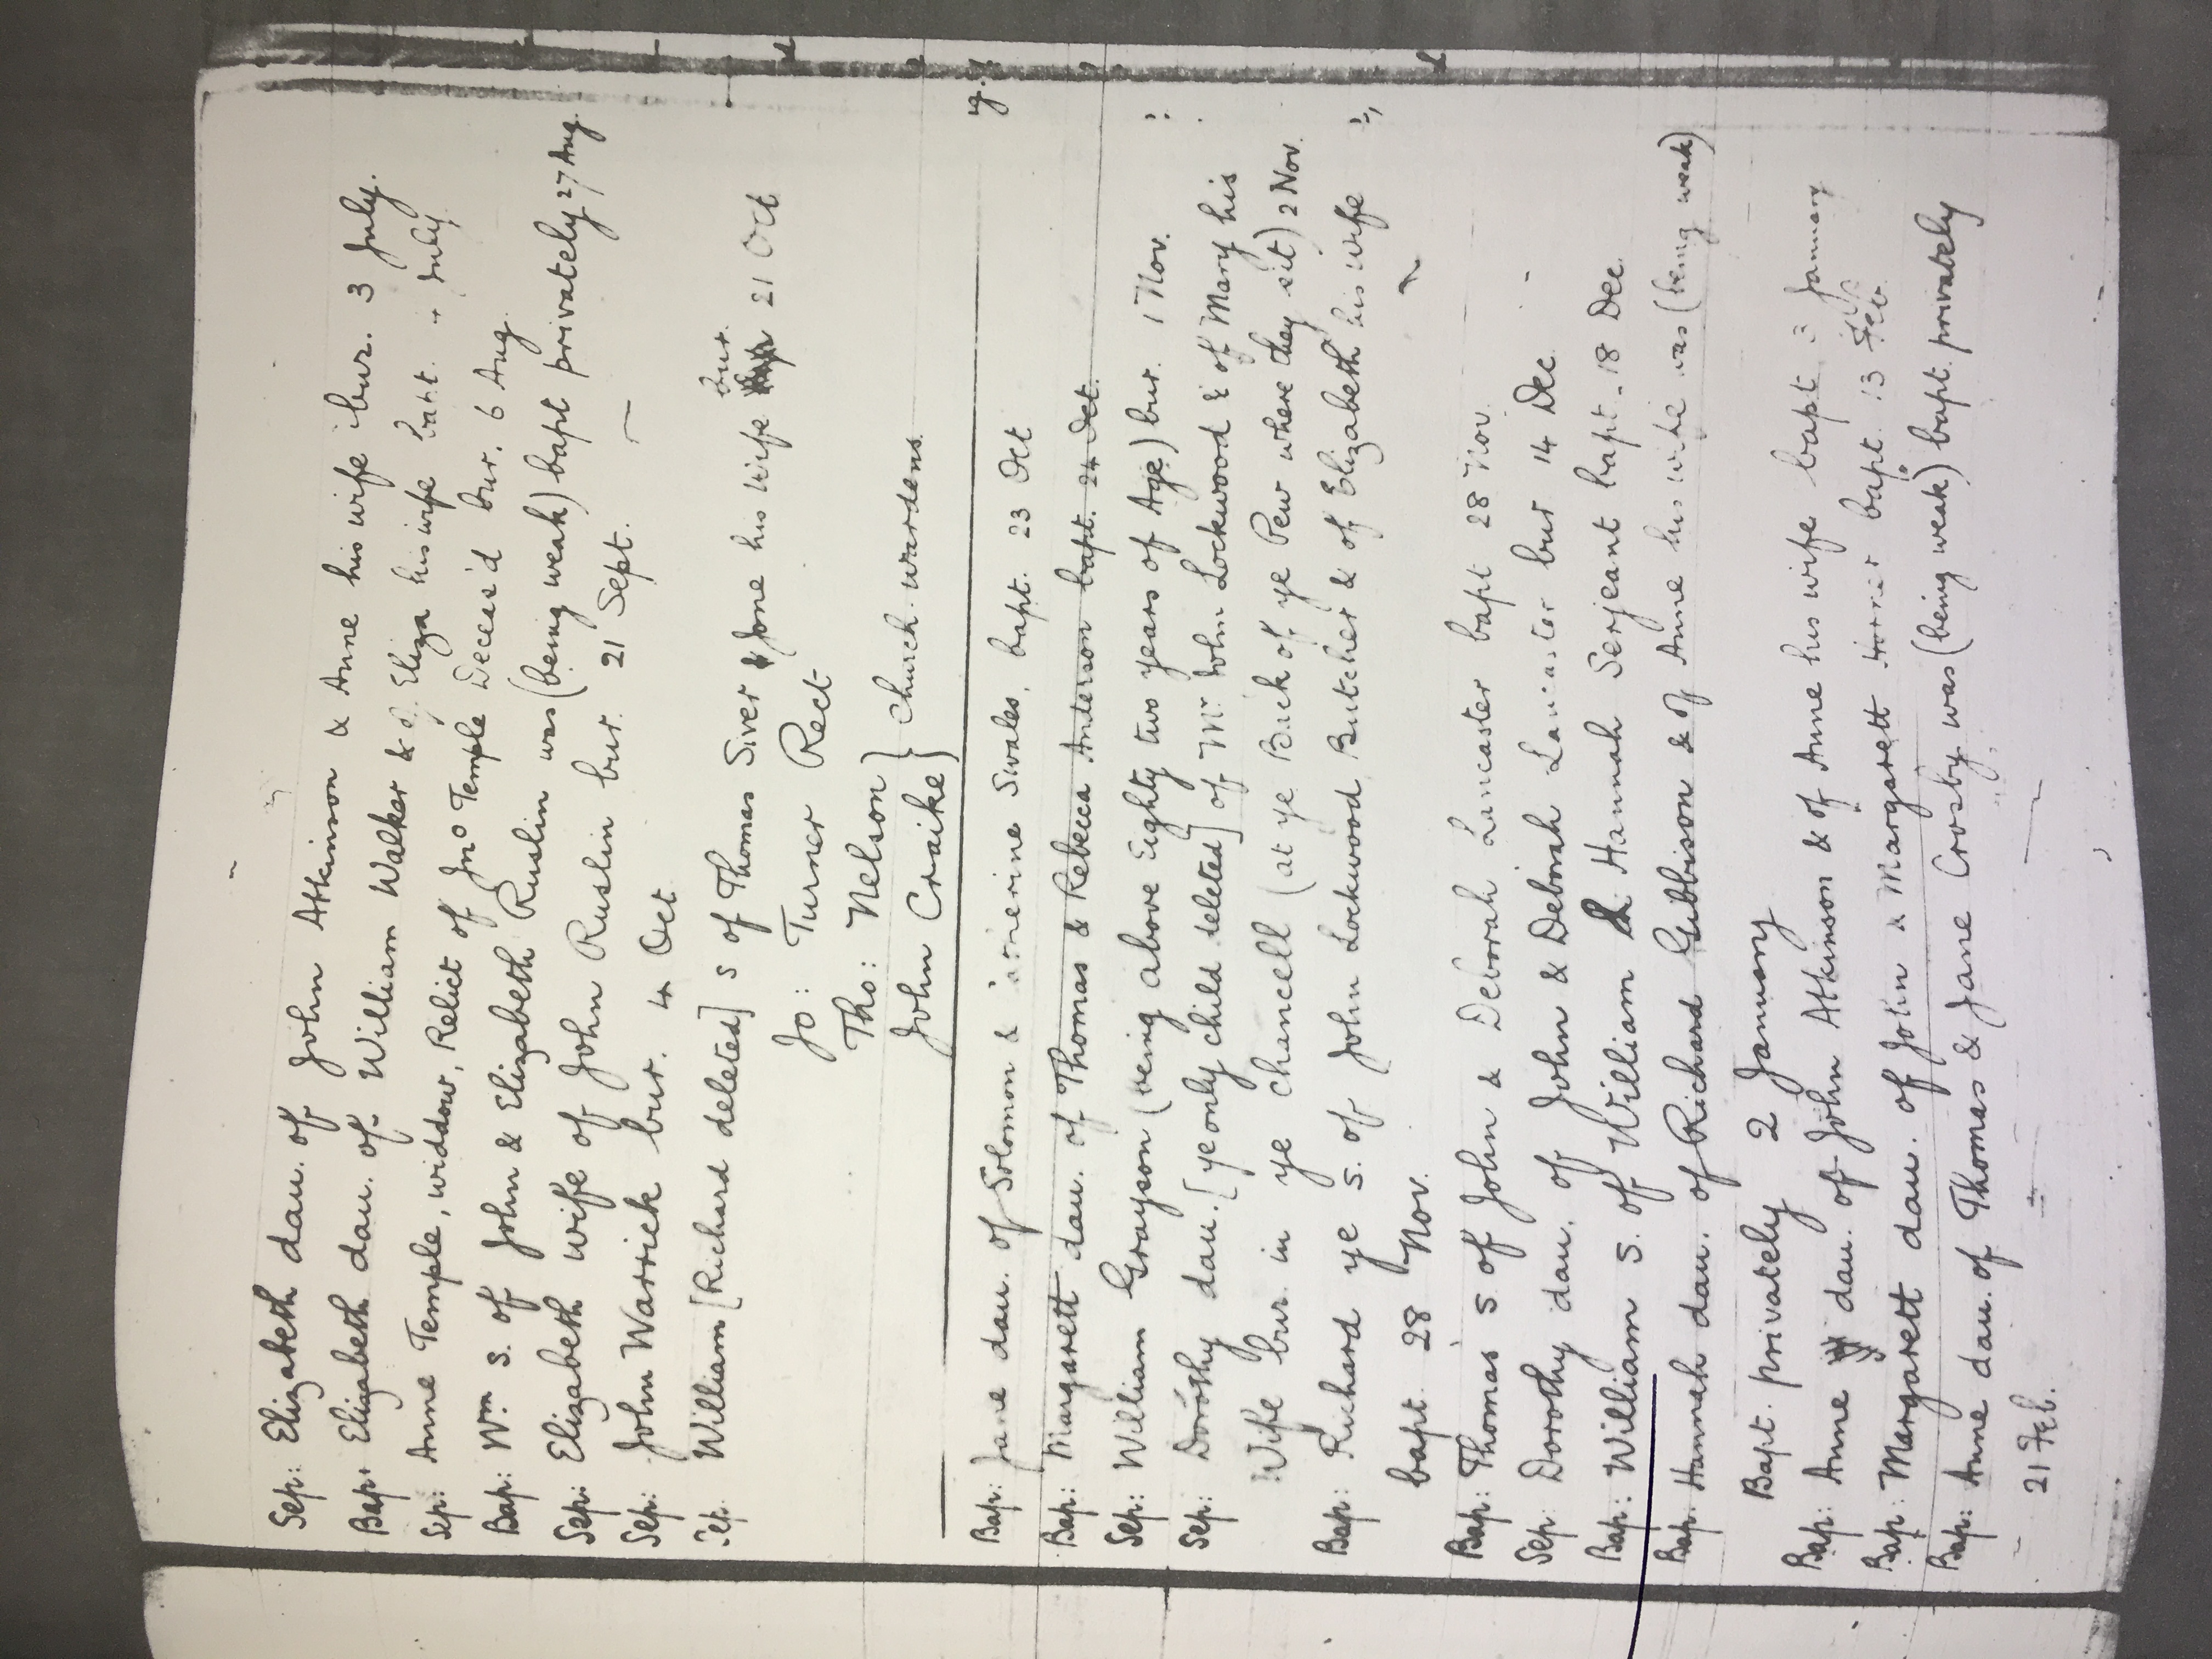 Sep: Elizabeth dau. of John Atkinson & Anne his wife bur. 3 July.
Bap: Elizabeth dau. of William Walker & of Eliza his wife bapt. July
Sep: Anne Temple, widdow, Relict of Jno Temple Deceas'd bur. 6 Aug.
Bap: Wm. s. of John & Elizabeth Ruslin was (being weak) bapt privately 27 Aug.
Sep: Elizabeth wife of John Ruslin bur. 21 Sept.
Sep: John Warrick bur. 4 Oct
Sep. William [Richard deleted] s of Thomas Siver & Jone his wife bur. 21 Oct
Jo: Turner Rect
Tho: Nelson } Church-wardens.
John Craike }
Bap: Jane dau. of Solomon & Swales, bapt. 23 Oct
Bap: Margarett dau. of Thomas & Rebecca Anderson bapt. 24 Oct.
Sep: William Grayson (being above Eighty two years of Age) bur. 1 Nov.
Sep: Dorothy dau. [ye only child deleted] of Mr John Lockwood & of Mary his
Wife bur. in ye Chancell (at ye Back of ye Pew where they sit) 2 Nov.
Bap: Richard ye s. of John Lockwood Butcher & of Elizabeth his wife
bapt. 28 Nov.
Bap: Thomas s of John & Deborah Lancaster bapt 28 Nov.
Sep: Dorothy dau. of John & Deborah Lancaster bur 14 Dec.
Bap: William s. of William & Hannah Serjeant bapt. 18 Dec.
Bap. Hannah dau. of Richard Gibbison & of Anne his wife was (being weak)
Bapt. privately 2 January
Bap: Anne dau. of John Atkinson & of Anne his wife bapt 3 January
Bap: Margarett dau. of John & Margarett bapt. 13 Feb.
Bap: Anne dau. of Thomas & Jane Crosby was (being weak) bapt. privately
21 Feb.